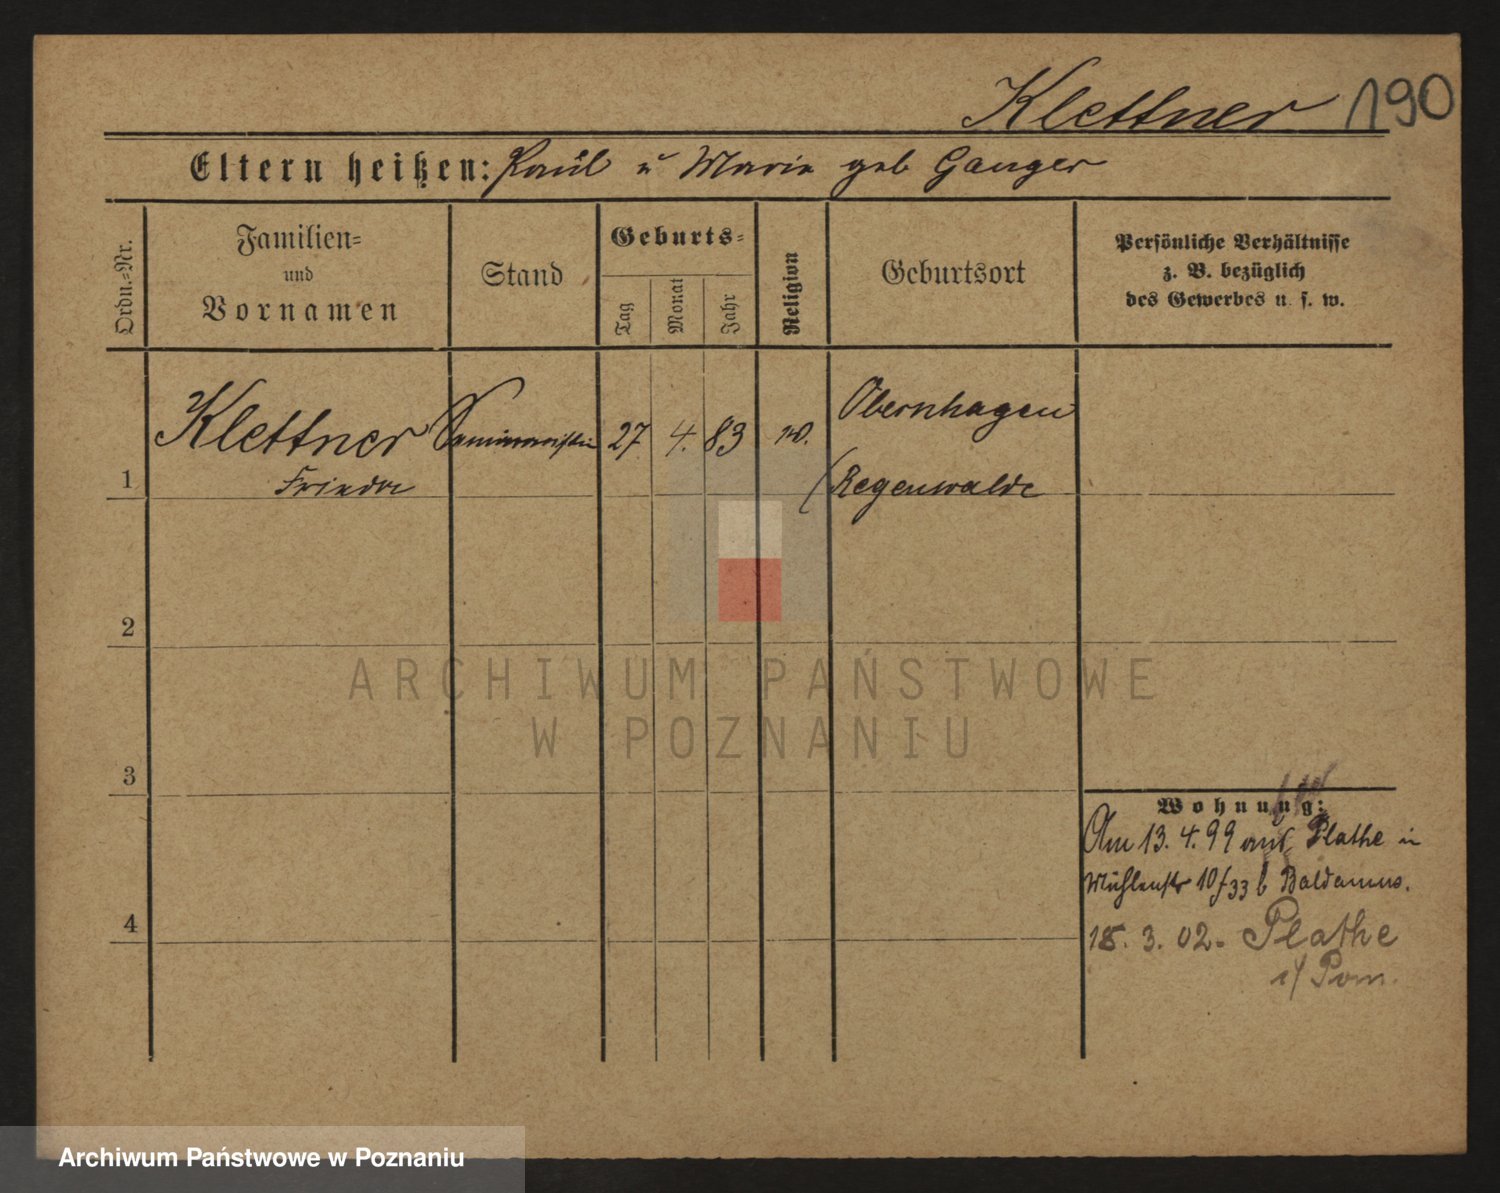 Klettner 190
Eltern heißen: Paul u Marie geb Ganger
Ordn.=Nr.
Familien=
und
Vornamen
Stand
Geburts=
Tag
Monat
Jahr
Religion
Geburtsort
Persönliche Verhältnisse
z. B. bezüglich
des Gewerbes u. s. w.
1
Klettner
Frieda
Seminaristin
27
4.
83
Obernhagen
(Regenwalde
2
3
4
Wohnung:
Am 13. 4. 99 aus Plathe in
Mühlenstr 10/33 b Baldamus.
18. 3. 02. Plathe
i/ Pom.
ARCHIWUM PAŃSTWOWE
W POZNANIU
Archiwum Państwowe w Poznaniu